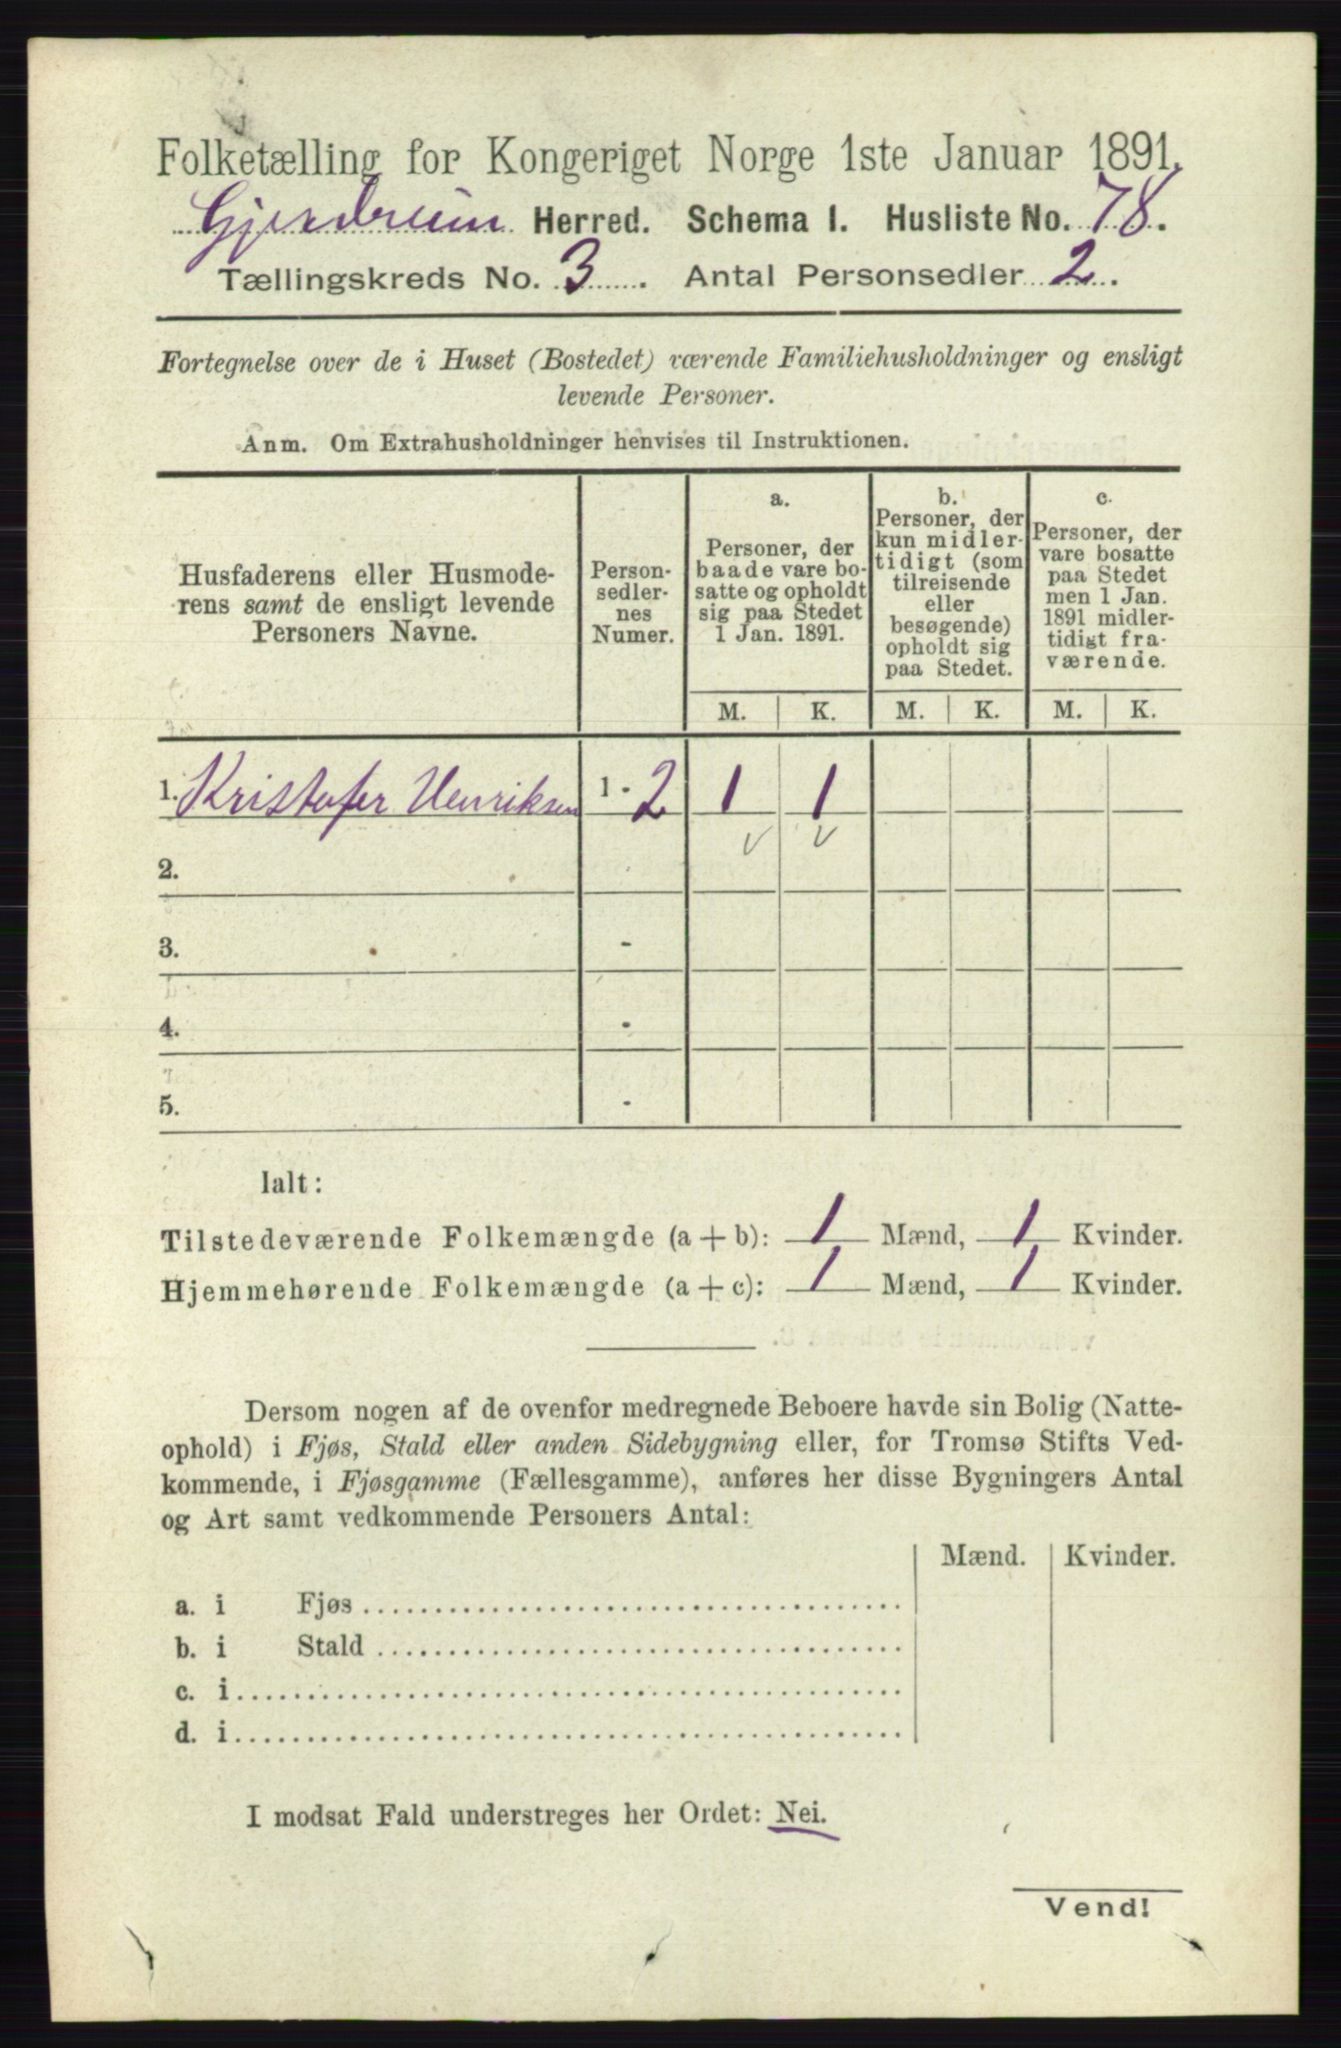 Folketælling for Kongeriget Norge 1ste Januar 1891.
Gjerdrum Herred. Schema I. Husliste No. 78.
Tællingskreds No. 3. Antal Personsedler 2.
Fortegnelse over de i Huset (Bostedet) værende Familiehusholdninger og ensligt
levende Personer.
Anm. Om Extrahusholdninger henvises til Instruktionen.
Husfaderens eller Husmode-
rens samt de ensligt levende
Personers Navne.
Person-
sedler-
nes
Numer.
a.
Personer, der
baade vare bo-
satte og opholdt
sig paa Stedet
1 Jan. 1891.
b.
Personer, der
kun midler-
tidigt (som
tilreisende
eller
besøgende)
opholdt sig
paa Stedet.
c.
Personer, der
vare bosatte
paa Stedet
men 1 Jan.
1891 midler-
tidigt fra-
værende.
M. K. M. K. M. K.
1. Kristofer Henriksen 1 - 2 1 1
2.
3. -
4. -
5. -
Ialt:
Tilstedeværende Folkemængde (a + b): 1 Mænd, 1 Kvinder.
Hjemmehørende Folkemængde (a + c): 1 Mænd, 1 Kvinder.
Dersom nogen af de ovenfor medregnede Beboere havde sin Bolig (Natte-
ophold) i Fjøs, Stald eller anden Sidebygning eller, for Tromsø Stifts Ved-
kommende, i Fjøsgamme (Fællesgamme), anføres her disse Bygningers Antal
og Art samt vedkommende Personers Antal:
Mænd. Kvinder.
a. i Fjøs
b. i Stald
c. i
d. i
I modsat Fald understreges her Ordet: Nei.
Vend!